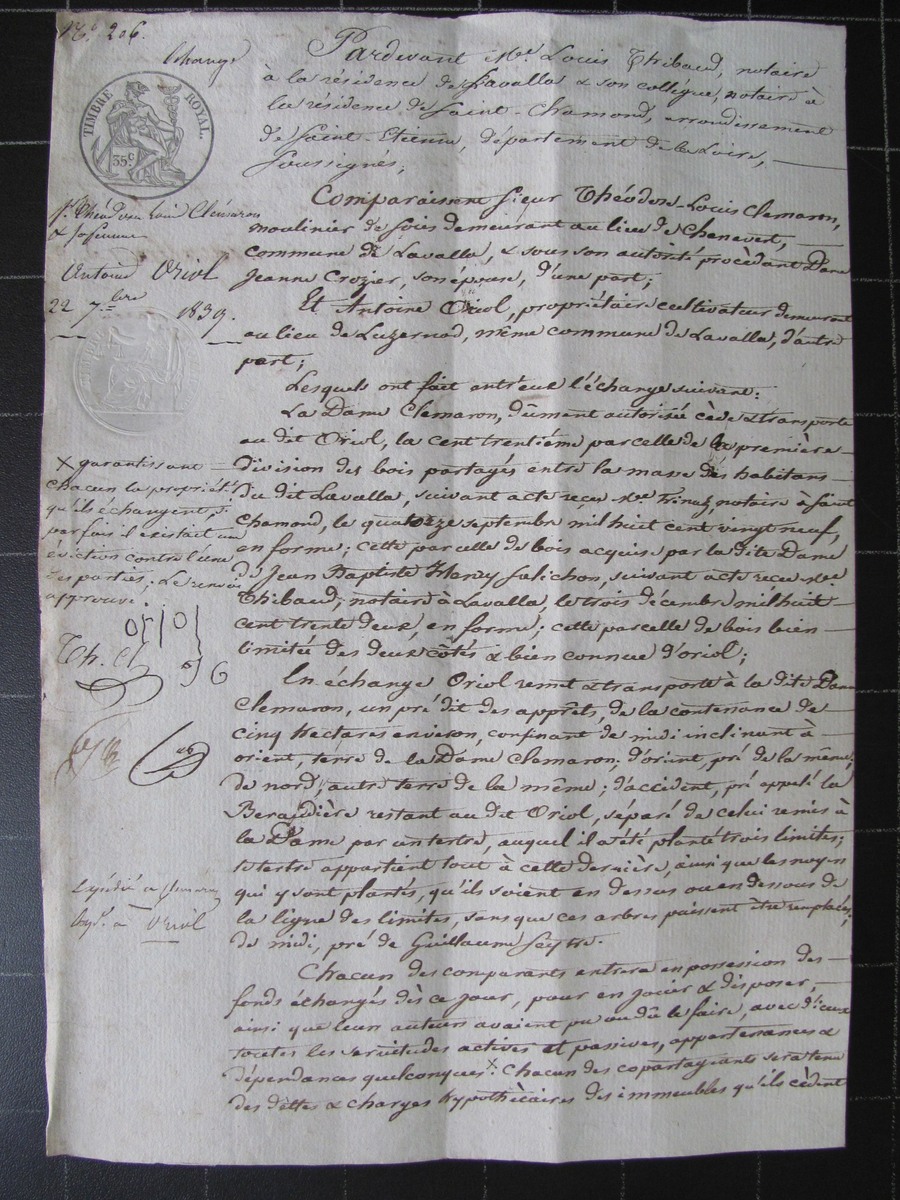 N.° 206.
Échange
TIMBRE ROYAL.
35 c.
Pardevant M.e Louis Thibaud, notaire
à la résidence de Lavalla & son collègue, notaire à
la résidence de Saint-Chamond, arrondissement
de Saint-Etienne, département de la Loire,
soussignés;
Comparaissent sieur Théodore-Louis Clemaron,
moulinier de soies demeurant au lieu de Chenevert,
commune de Lavalla, & sous son autorité procédant Dame
Jeanne Crozier, son épouse, d'une part;
Et Antoine Oriol, propriétaire cultivateur demeurant
au lieu de Luzernod, même commune de Lavalla, d'autre
part;
Lesquels ont fait entr'eux l'échange suivant:
La Dame Clemaron, dûment autorisée cède & transporte
au dit Oriol, la cent trentième parcelle de la première
division des bois partagés entre la masse des habitans
du dit Lavalla, suivant acte reçu M.e Finaz, notaire à Saint
Chamond, le quatorze septembre mil huit cent vingt neuf,
en forme; cette parcelle de bois acquise par la dite Dame
de Jean Baptiste Henry Salichon, suivant acte recu M.e
Thibaud, notaire à Lavalla, le trois décembre mil huit
cent trente deux, en forme; cette parcelle de bois bien
limitée des deux côtés & bien connue d'oriol;
En échange Oriol remet & transporte à la dite Dame
Clemaron, un pré dit des apprêts, de la contenance de
cinq hectares environ, confinant de midi inclinant à
orient, terre de la Dame Clemaron; d'orient pré de la même;
de nord, autre terre de la même; d'accident, pré appelé la
Beraudière restant au dit Oriol, séparé de celui remis à
la Dame par un tertre, auquel il a été planté trois limites;
le tertre appartient tout à cette dernière, ainsi que les noyers
qui y sont plantés, qu'ils soient en dessus ou en dessous de
la ligne des limites, sans que ces arbres puissent être remplacés,
de midi, pré de Guillaume Seytre.
Chacun des comparants entrera en possession des
fonds échangés dès ce jour, pour en jouir & disposer,
ainsi que leurs auteurs avaient pu ou dû le faire, avec d'iceux
toutes les servitudes actives et passives, appartenances &
dépendances quelconques x. Chacun des copartageants sera tenu
des dettes & charges hypothècaires des immeubles qu'ils cèdent
S.r Théodore Louis Clémaron
& sa femme
Antoine Oriol
22 7.bre 1839.
x garantissant
chacun la propriété
qu'ils échangent, si
parfois il existait une
éviction contre l'une
des parties; Le renvoi
approuvé.
oriol
Th. Cl
Expédié a Clemaron
Exp.é à Oriol